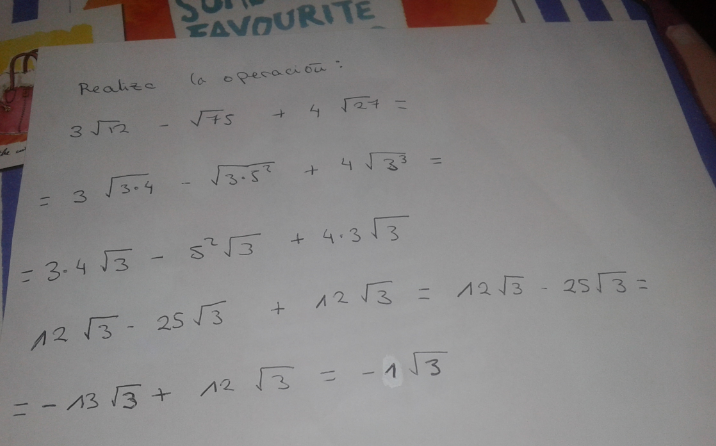 FAVOURITE
Realiza la operación:
3√12 - √75 + 4√27 =
= 3√3·4 - √3·5² + 4√3³ =
= 3·4√3 - 5²√3 + 4·3√3
12√3 - 25√3 + 12√3 = 12√3 - 25√3 =
= -13√3 + 12√3 = -1√3